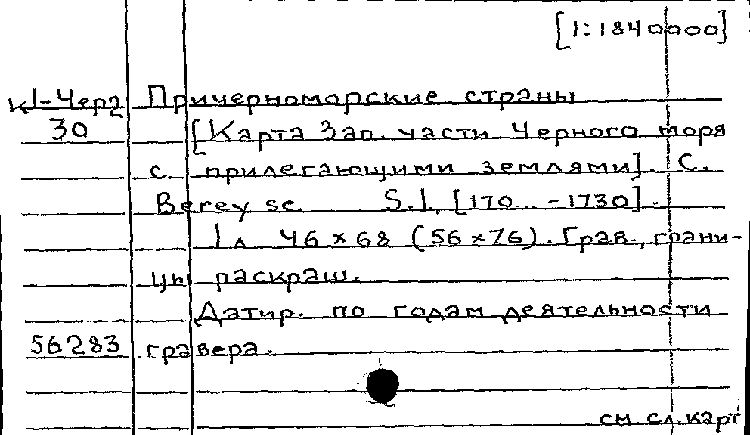 [1:1840000]
К1-Черг Причерноморские страны
30 [Карта Зап. части Черного моря
с прилегающими землями]. С.
Berey sc. S.l. [170...-1730].
1 л 46×68 (56×76). Грав., грани-
цы раскраш.
Датир. по годам деятельности
56283 гравера.
см сл. карт